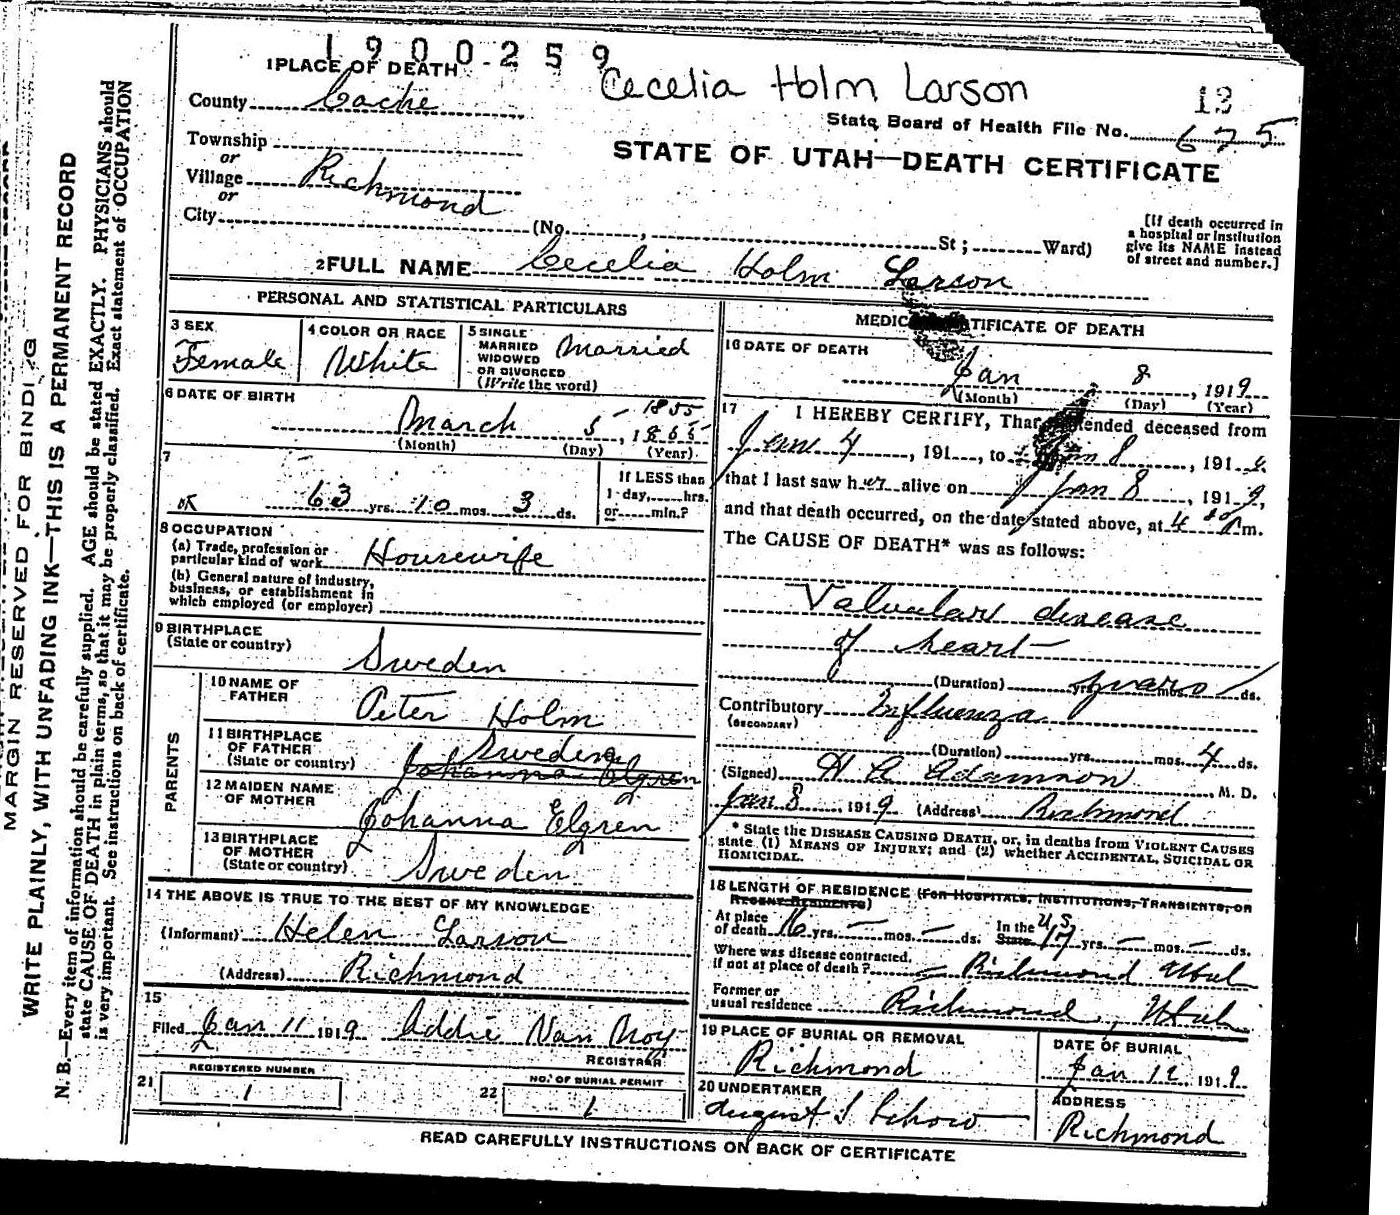 1900259
Cecelia Holm Larson
13
1 PLACE OF DEATH
County Cache
State Board of Health File No. 675
Township
or
Village Richmond
or
City (No. , St ; Ward)
STATE OF UTAH—DEATH CERTIFICATE
[If death occurred in
a hospital or institution
give its NAME instead
of street and number.]
2 FULL NAME Cecelia Holm Larson
PERSONAL AND STATISTICAL PARTICULARS
3 SEX
Female
4 COLOR OR RACE
White
5 SINGLE
MARRIED
WIDOWED
OR DIVORCED
(Write the word)
Married
6 DATE OF BIRTH
1855
March 5, 1865
(Month) (Day) (Year)
7
OK 63 yrs. 10 mos. 3 ds.
If LESS than
1 day, hrs.
or min.?
8 OCCUPATION
(a) Trade, profession or
particular kind of work Housewife
(b) General nature of industry,
business, or establishment in
which employed (or employer)
9 BIRTHPLACE
(State or country)
Sweden
PARENTS
10 NAME OF
FATHER
Peter Holm
11 BIRTHPLACE
OF FATHER
(State or country)
Sweden
Johanna Elgren
12 MAIDEN NAME
OF MOTHER
Johanna Elgren
13 BIRTHPLACE
OF MOTHER
(State or country)
Sweden
14 THE ABOVE IS TRUE TO THE BEST OF MY KNOWLEDGE
(Informant) Helen Larson
(Address) Richmond
15
Filed Jan 11 1919 Addie Van Noy
REGISTRAR
21 REGISTERED NUMBER
1
22 NO. OF BURIAL PERMIT
1
MEDIC TIFICATE OF DEATH
16 DATE OF DEATH
Jan 8, 1919
(Month) (Day) (Year)
17 I HEREBY CERTIFY, That tended deceased from
Jan 4, 191 , to Jan 8, 191
that I last saw her alive on Jan 8, 1919,
and that death occurred, on the date stated above, at 4 P m.
The CAUSE OF DEATH* was as follows:
Valvular disease
of heart
(Duration) yrs. years mos. ds.
Contributory Influenza
(SECONDARY)
(Duration) yrs. mos. 4 ds.
(Signed) H A Adamson M. D.
Jan 8 1919 (Address) Richmond
* State the DISEASE CAUSING DEATH, or, in deaths from VIOLENT CAUSES
state (1) MEANS OF INJURY; and (2) whether ACCIDENTAL, SUICIDAL OR
HOMICIDAL.
18 LENGTH OF RESIDENCE (FOR HOSPITALS, INSTITUTIONS, TRANSIENTS, OR
RECENT RESIDENTS)
At place
of death 16 yrs. — mos. — ds. In the U S State 47 yrs. — mos. — ds.
Where was disease contracted,
if not at place of death? — Richmond Utah
Former or
usual residence Richmond, Utah
19 PLACE OF BURIAL OR REMOVAL
Richmond
DATE OF BURIAL
Jan 12, 1919
20 UNDERTAKER
August S Schow
ADDRESS
Richmond
READ CAREFULLY INSTRUCTIONS ON BACK OF CERTIFICATE
MARGIN RESERVED FOR BINDING
WRITE PLAINLY, WITH UNFADING INK—THIS IS A PERMANENT RECORD
N. B.—Every item of information should be carefully supplied. AGE should be stated EXACTLY. PHYSICIANS should
state CAUSE OF DEATH in plain terms, so that it may be properly classified. Exact statement of OCCUPATION
is very important. See instructions on back of certificate.